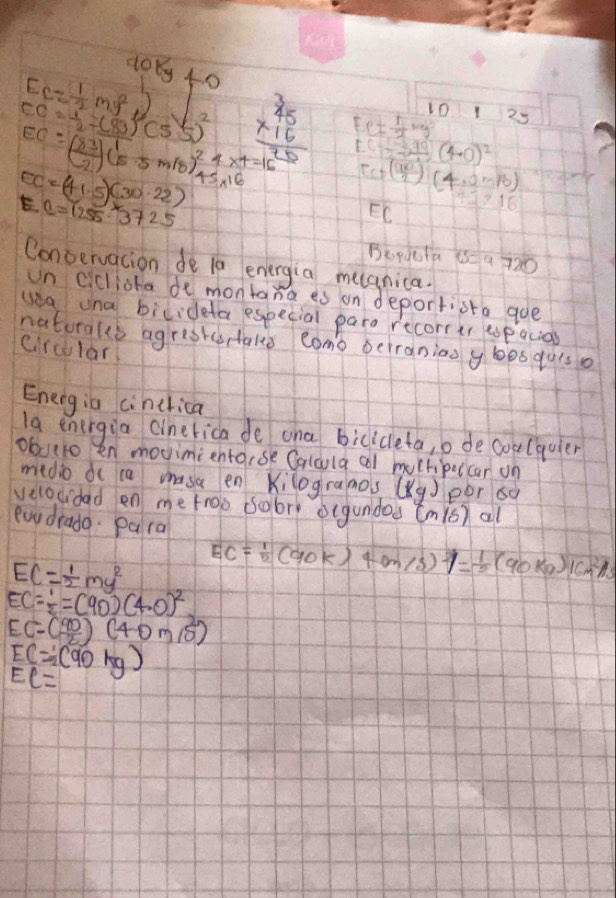 90 kg 4.0
EC = 1/2 my²
EC = 1/2 = (83) (5.5)²
EC = (83/2) (5.5 m/s)² 4 x 4 = 16
45 x 16
EC = (41.5)(30.22)
EC = 1255. 3725
3
45
x 16
10 25
EC = 1/2 my²
(4.0)²
(90/2) (4.0 m/s)
45 x 16
EC
es = a 720
Conservacion de la energia mecanica.
Un ciclista de montaña es un deportista que
usa una bicicleta especial para recorrer espacios
naturales como serranias y bosques o
circular.
Energia cinetica
la energia cinetica de una bicicleta, o de cualquier
objeto en movimiento, se calcula al multiplicar un
medio de la masa en Kilogramos (Kg) por su
velocidad en metros sobre segundos (m/s) al
para
EC = 1/2 (90 K) 4 m/s)² = 1/2 (90 Kg)
EC = 1/2 my²
EC = 1/2 = (90)(4.0)²
EC = (90/2) (4.0 m/s²)
EC = (90 kg)
EC =